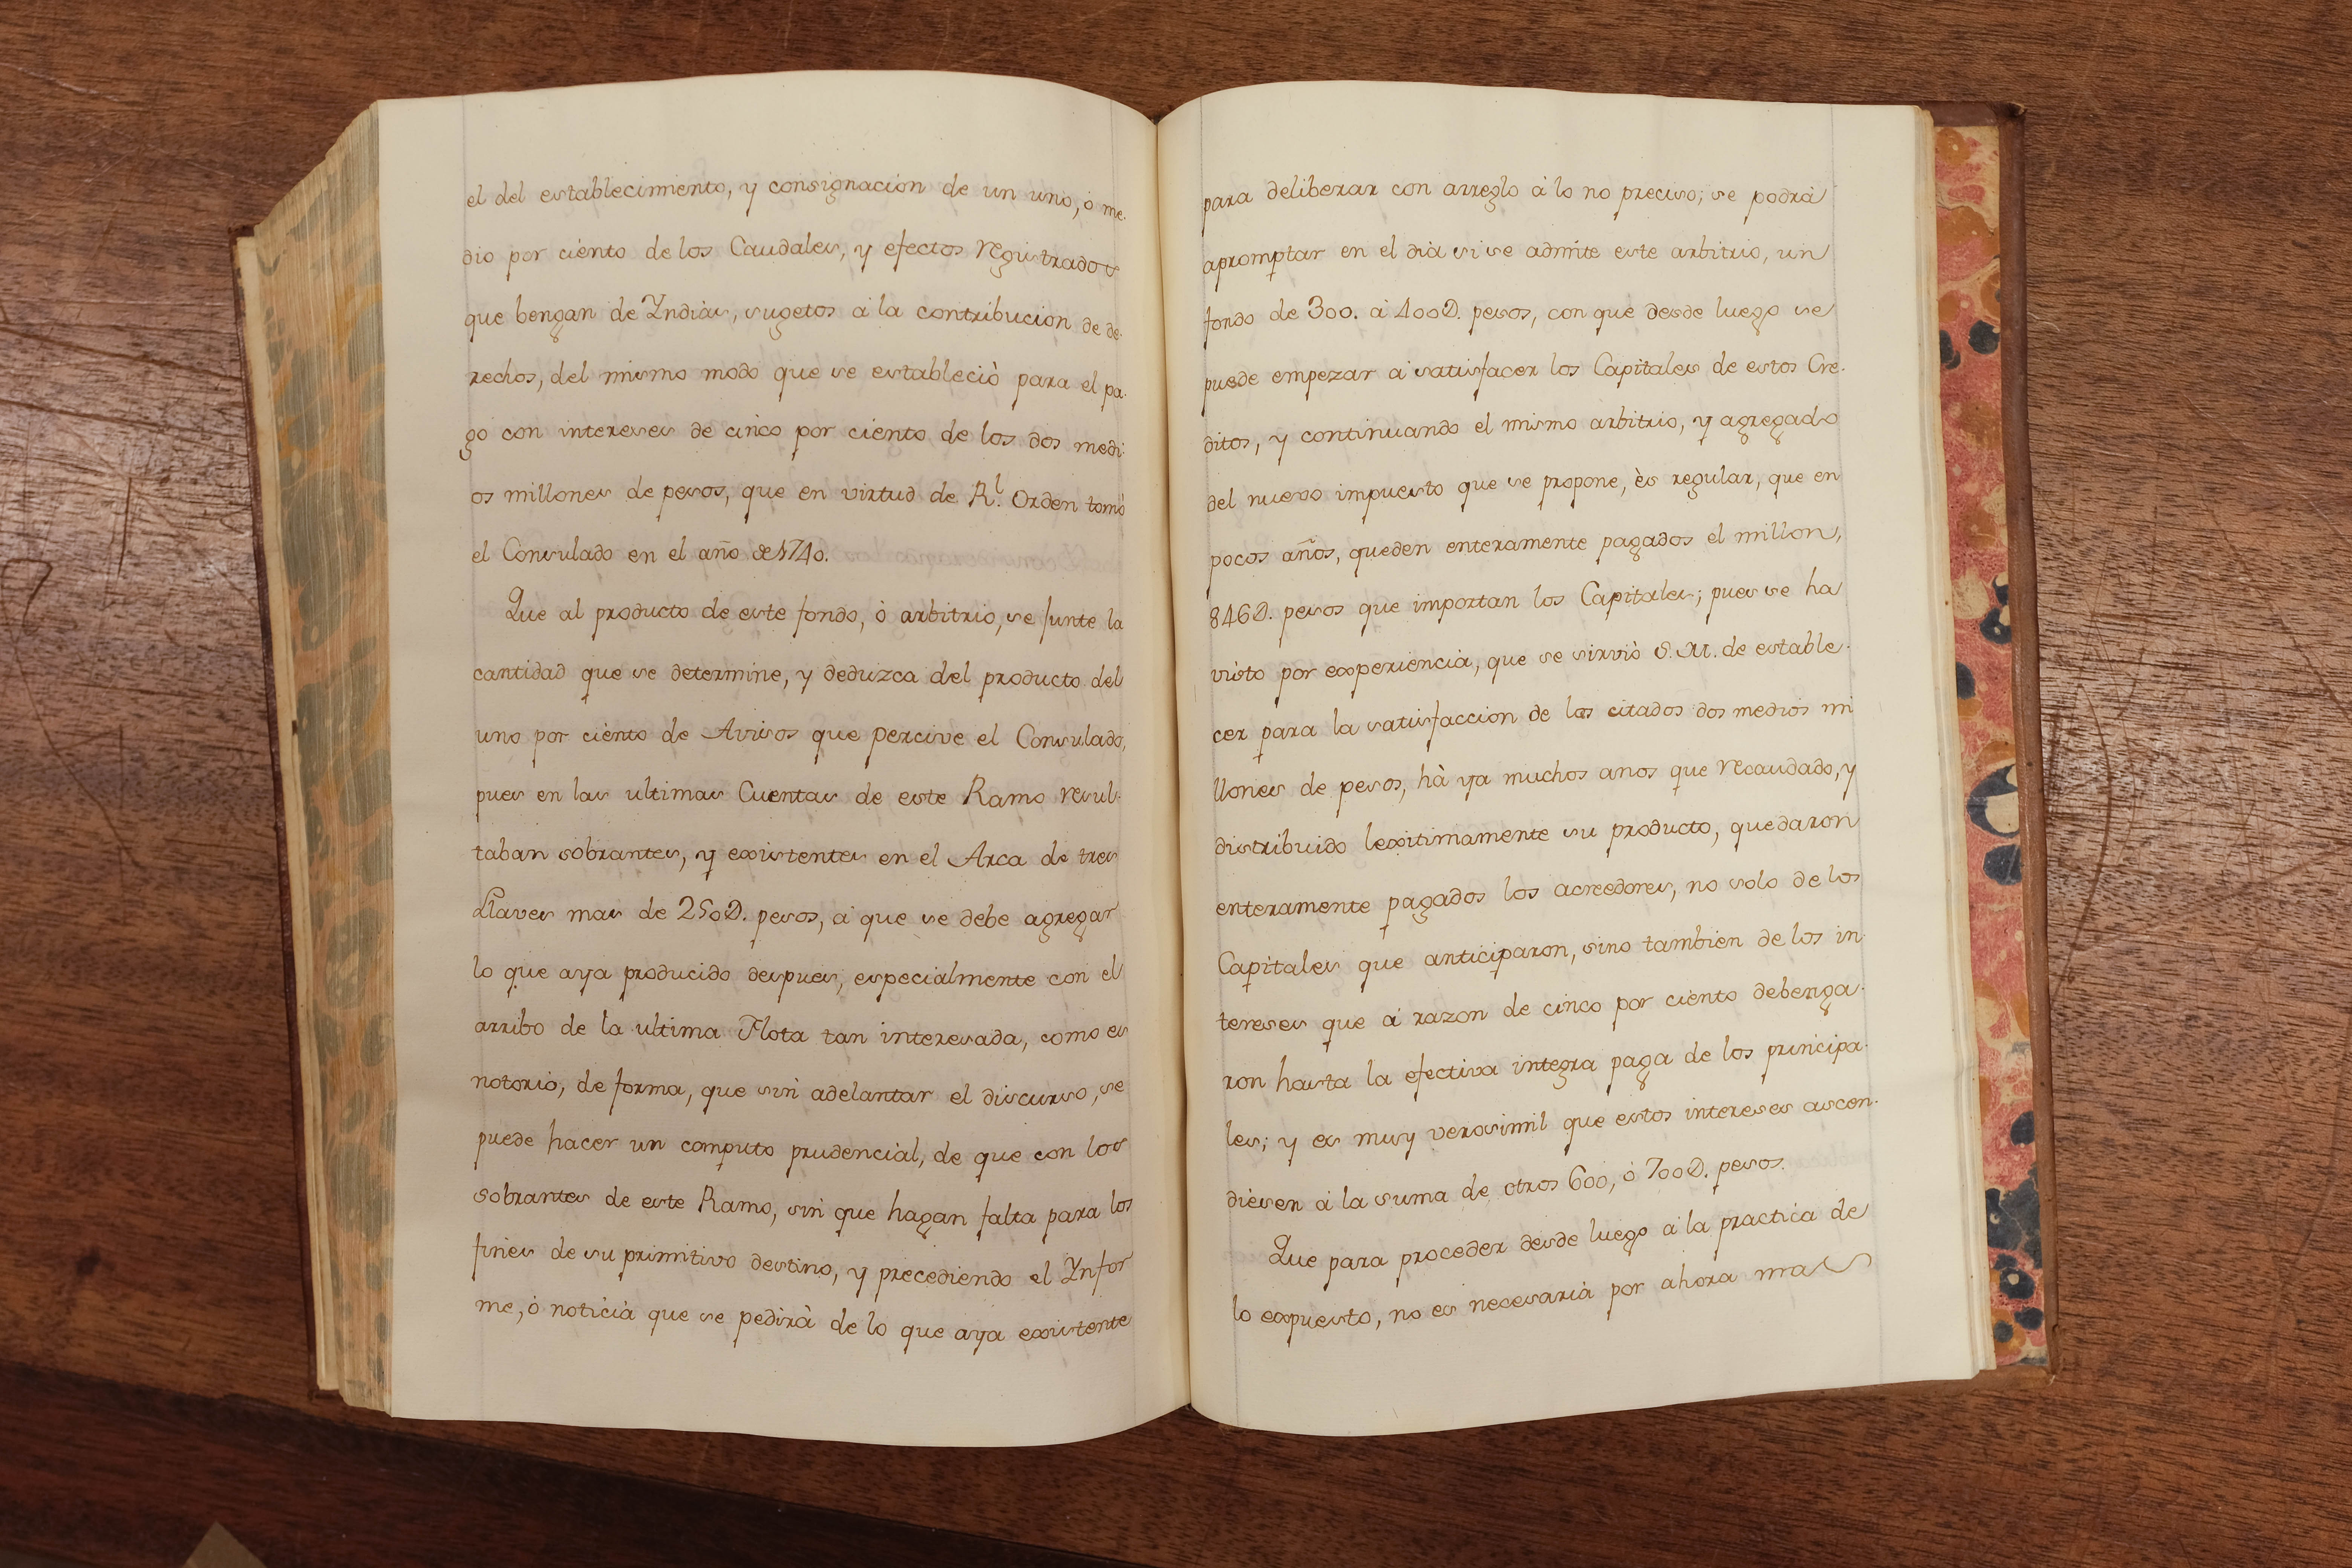 el del establecimiento, y consignacion de un uno, ò me-
dio por ciento de los Caudales, y efectos registrados
que bengan de Yndias, sugetos à la contribucion de de-
rechos, del mismo modo que se estableciò para el pa-
go con intereses de cinco por ciento de los dos medi-
os millones de pesos, que en virtud de Rl. Orden tomò
el Consulado en el año de 1740.
Que al producto de este fondo, ò arbitrio, se junte la
cantidad que se determine, y deduzca del producto del
uno por ciento de Avisos que percive el Consulado,
pues en las ultimas Cuentas de este Ramo resul-
taban sobrantes, y existentes en el Arca de tres
Llaves mas de 250D. pesos, à que se debe agregar
lo que aya producido despues, especialmente con el
arribo de la ultima Flota tan interesada, como es
notorio, de forma, que sin adelantar el discurso, se
puede hacer un computo prudencial, de que con los
sobrantes de este Ramo, sin que hagan falta para los
fines de su primitivo destino, y precediendo el Ynfor
me, ò noticia que se pedirà de lo que aya existente
para deliberar con arreglo à lo no preciso; se podrà
apromptar en el dia si se admite este arbitrio, un
fondo de 300. à 400D. pesos, con que desde luego se
puede empezar à satisfacer los Capitales de estos Cre-
ditos, y continuando el mismo arbitrio, y agregado
del nuevo impuesto que se propone, ès regular, que en
pocos años, queden enteramente pagados el millon,
846D. pesos que importan los Capitales; pues se ha
visto por experiencia, que se sirviò S. M. de estable-
cer para la satisfaccion de los citados dos medios mi
llones de pesos, hà ya muchos anos que recaudado, y
distribuido lexitimamente su producto, quedaron
enteramente pagados los acreedores, no solo de los
Capitales que anticiparon, sino tambien de los in-
tereses que à razon de cinco por ciento debenga-
ron hasta la efectiva integra paga de los principa-
les; y es muy verosimil que estos intereses ascen-
diesen à la suma de otros 600, ò 700D. pesos.
Que para proceder desde luego à la practica de
lo expuesto, no es necesaria por ahora mas